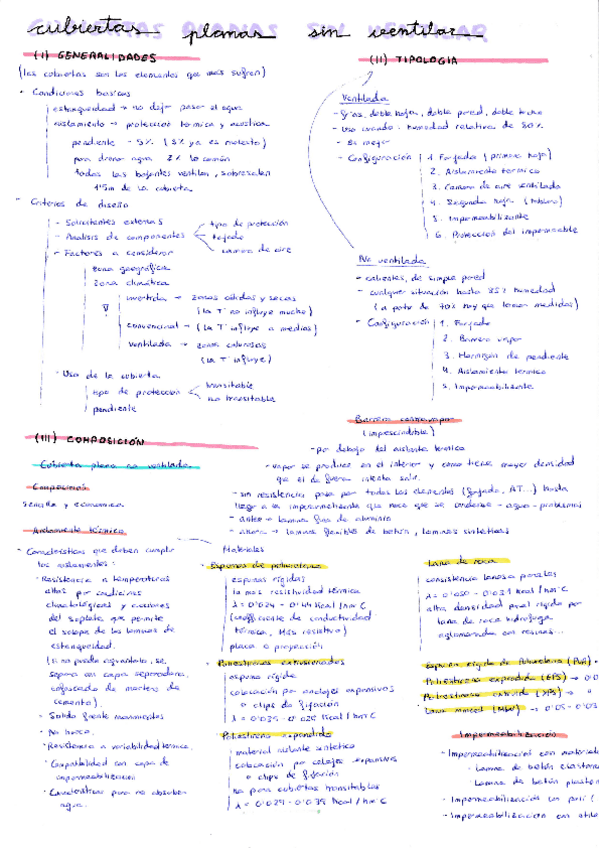 cubiertas planas sin ventilar
(I) GENERALIDADES
(las cubiertas son los elementos que más sufren)
- Condiciones básicas
estanqueidad → no dejar pasar el agua
aislamiento → protección térmica y acústica
pendiente - 5% (3% ya es molesto)
para drenar agua 2% lo común
todas las bajantes ventilan, sobresalen
1'5m de la cubierta
- Criterios de diseño
- Solicitaciones externas
- Análisis de componentes
tipo de protección
forjado
cámara de aire
- Factores a considerar
zona geográfica
zona climática
invertida → zonas cálidas y secas
(la T no influye mucho)
convencional → (la T influye a medias)
ventilada → zonas calurosas
(la T influye)
- Uso de la cubierta
tipo de protección
transitable
no transitable
pendiente
(II) TIPOLOGÍA
Ventilada
- frías, doble hoja, doble pared, doble techo
- Uso cuando: humedad relativa de 80%
- Es mejor
- Configuración
1. Forjado (primera hoja)
2. Aislamiento térmico
3. Cámara de aire ventilada
4. Segunda hoja (tablero)
5. Impermeabilizante
6. Protección del impermeable
No ventilada
- calientes, de simple pared
- cualquier situación hasta 85% humedad
(a partir de 70% hay que tomar medidas)
- Configuración
1. Forjado
2. Barrera vapor
3. Hormigón de pendiente
4. Aislamiento térmico
5. Impermeabilizante
(III) COMPOSICIÓN
Cubierta plana no ventilada
sencilla y económica
Aislamiento térmico
- Características que deben cumplir
los aislamientos:
- Resistencia a temperaturas
altas por condiciones
climatológicas y
del soplete que permite
el solape de las láminas de
estanqueidad.
(si no puede aguantarlo, se
separa con capa separadora,
de mortero de
cemento).
- Sólido frente movimientos
- No hueco.
- Resistencia a variabilidad térmica.
- Compatibilidad con capa de
impermeabilización
- Característica para no absorber
agua.
Barrera contravapor
(imprescindible)
- por debajo del aislante térmico
- vapor se produce en el interior y como tiene mayor densidad
que el de fuera intenta salir.
- sin resistencia pasa por todos los elementos (forjado, AT...) hasta
llegar a la impermeabilización que hace que se condense → agua → problemas
- antes → lámina fina de aluminio
- ahora → láminas flexibles de betún, láminas sintéticas
Materiales
Espuma de poliuretano
espumas rígidas
la más resistividad térmica
(coeficiente de conductividad
térmica, más resistivo)
placa o proyección
Poliestireno extrusionados
espuma rígida
colocación por anclajes expansivos
o clips de fijación
λ = 0'035 - 0'029 Kcal / hm C
Poliestireno expandido
material aislante sintético
colocación por anclajes expansivos
o clips de fijación
no para cubiertas transitables
λ = 0'029 - 0'039 Kcal / hm C
Lana de roca
consistencia lanosa paneles
λ = 0'030 - 0'031 Kcal / hm C
alta densidad panel rígido por
lana de roca hidrófuga
aglomerada con resinas...
Espuma rígida de Poliuretano (PUR)
Poliestireno expandido (EPS)
Poliestireno extruido (XPS)
Lana mineral (MW)
Impermeabilización
- Impermeabilización con
- Lámina de betún
- Lámina de betún
- Impermeabilización con
- Impermeabilización con